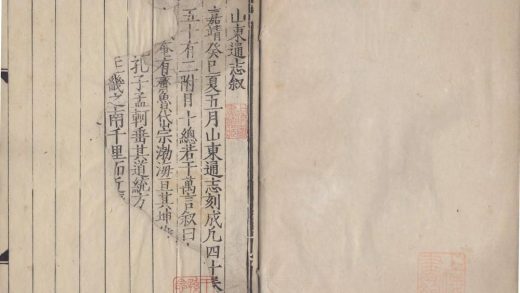 山東通志叙
嘉靖癸巳夏五月山東通志刻成凡四十卷
五十有二附目十總若干萬言叙曰
奄有齊魯岱宗渤海亘其坤
孔子孟軻垂其道統方
王畿之南千里而